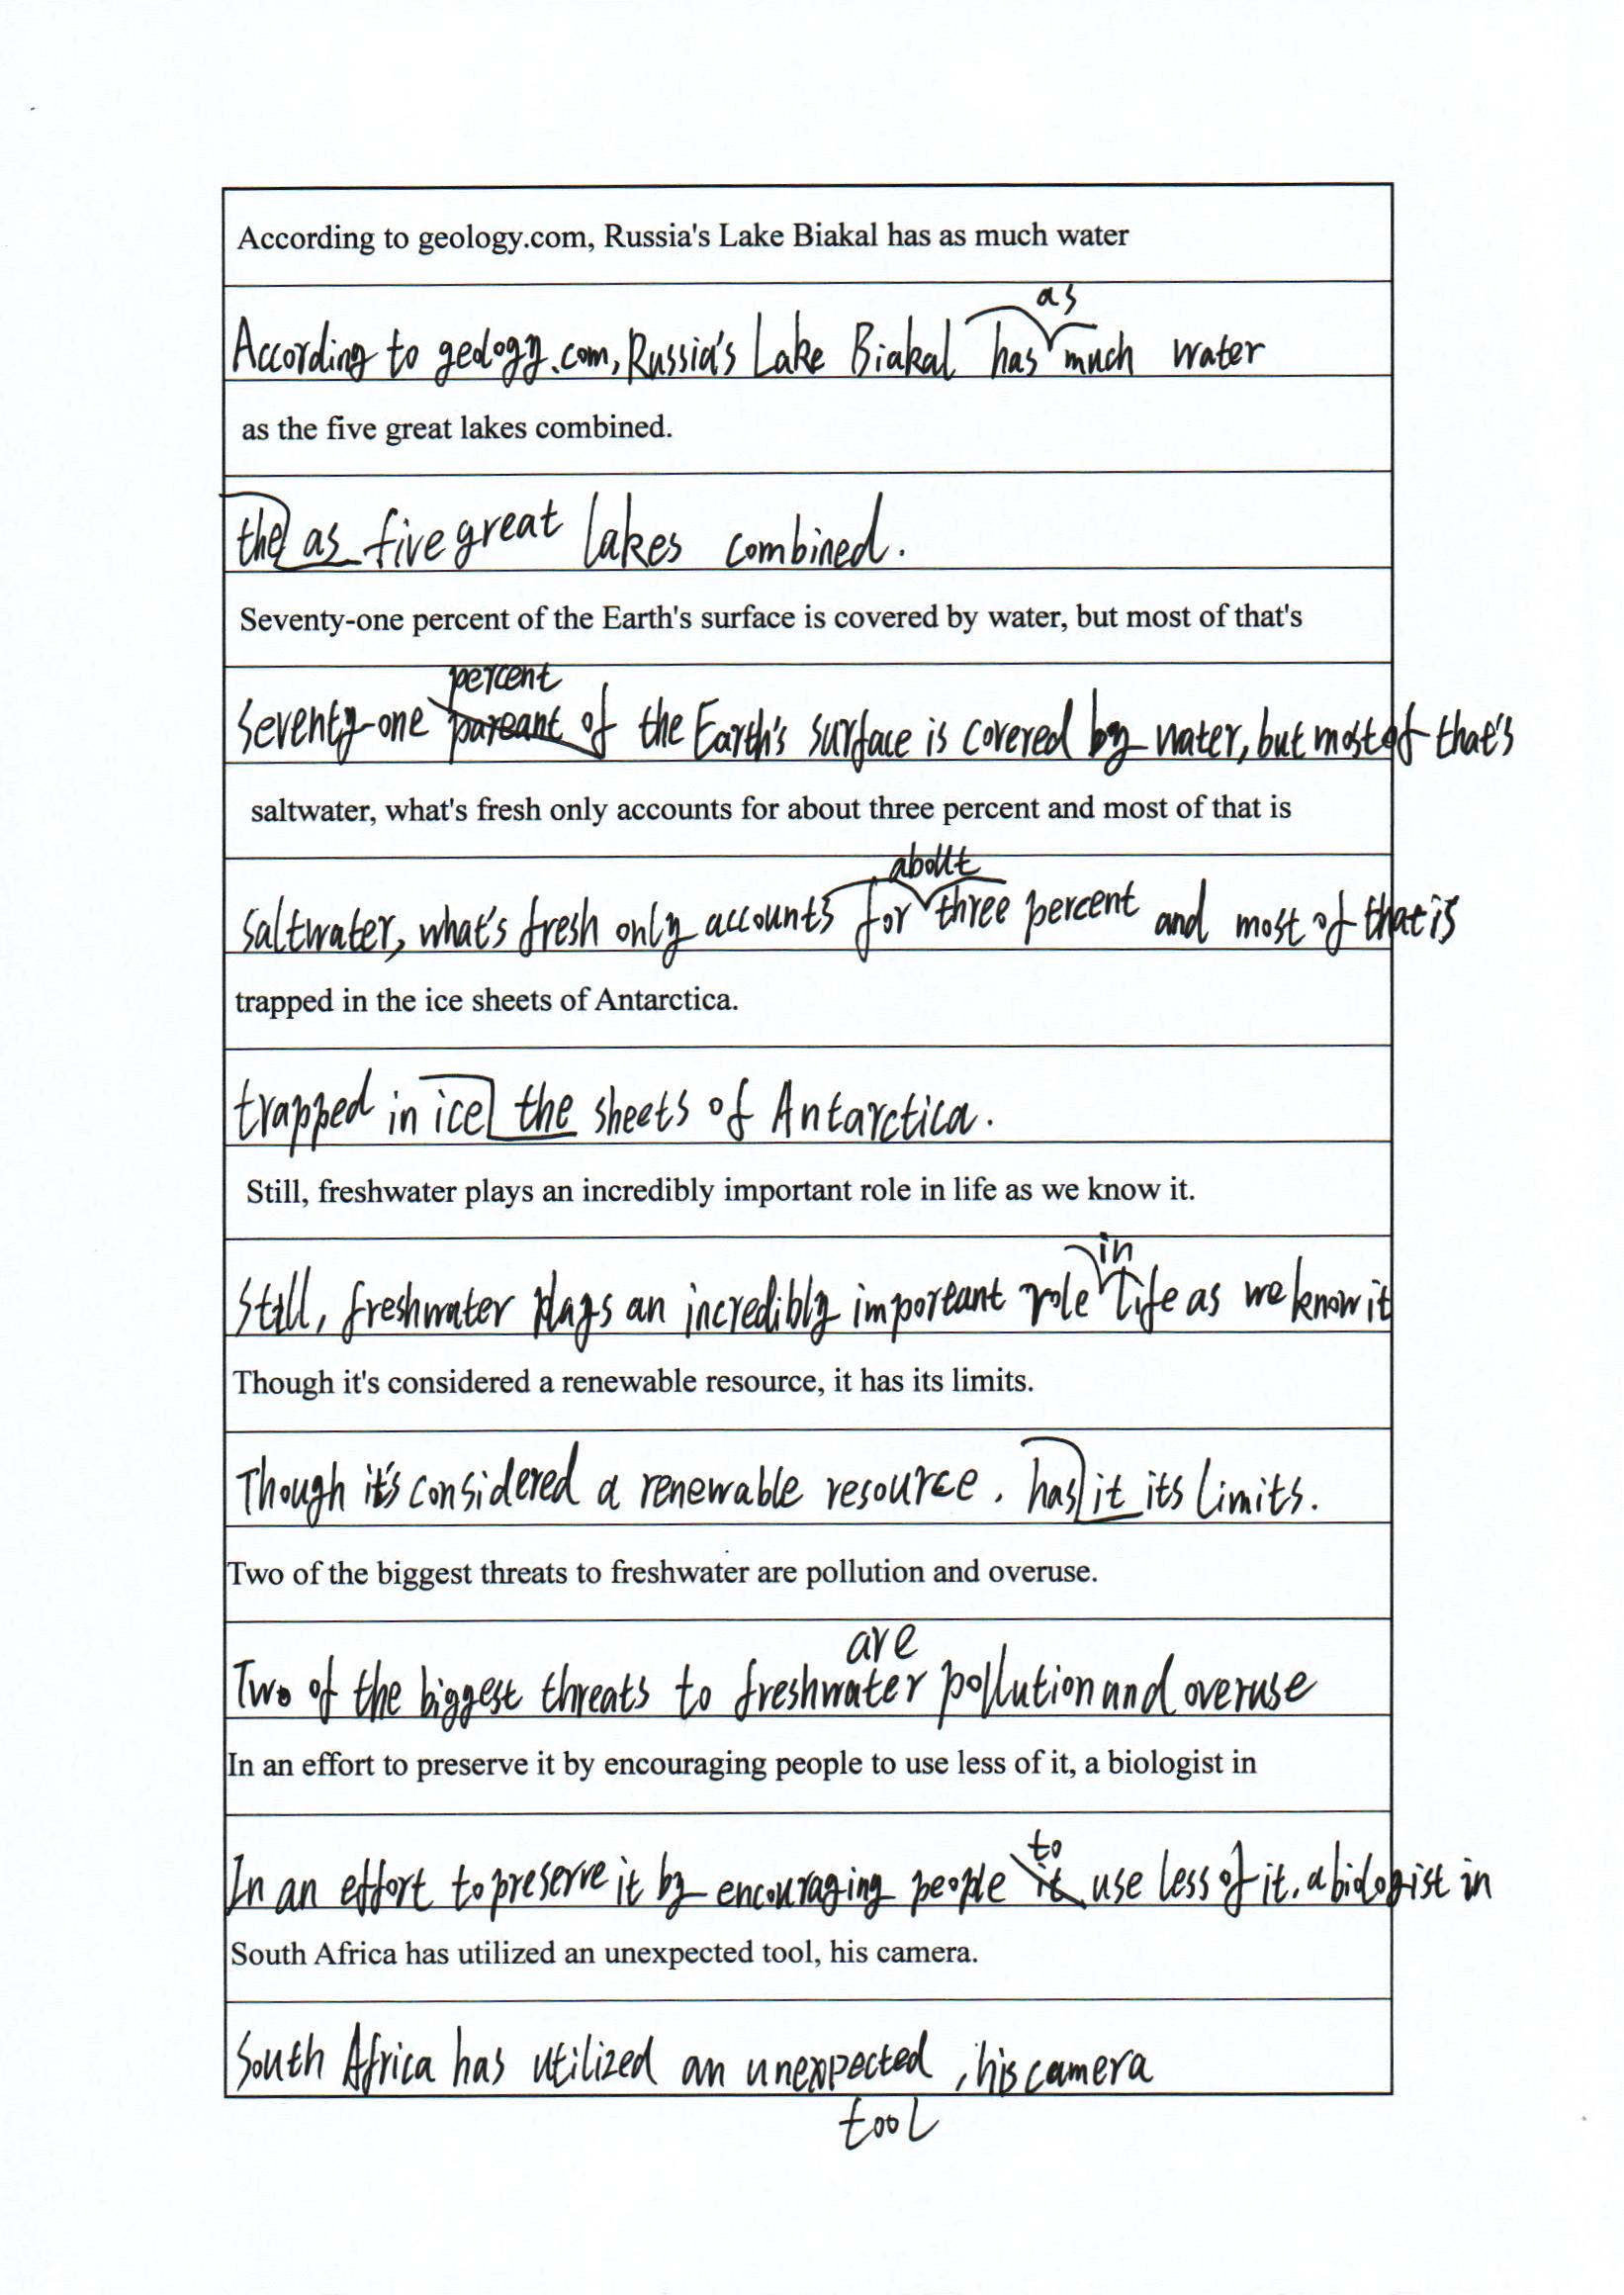 According to geology.com, Russia's Lake Biakal has as much water
According to geology.com, Russia's Lake Biakal has as much water
as the five great lakes combined.
the as five great lakes combined.
Seventy-one percent of the Earth's surface is covered by water, but most of that's
Seventy-one percent of the Earth's surface is covered by water, but most of that's
saltwater, what's fresh only accounts for about three percent and most of that is
saltwater, what's fresh only accounts for about three percent and most of that is
trapped in the ice sheets of Antarctica.
trapped in ice the sheets of Antarctica.
Still, freshwater plays an incredibly important role in life as we know it.
Still, freshwater plays an incredibly important role in life as we know it
Though it's considered a renewable resource, it has its limits.
Though it's considered a renewable resource, has it its limits.
Two of the biggest threats to freshwater are pollution and overuse.
Two of the biggest threats to freshwater are pollution and overuse
In an effort to preserve it by encouraging people to use less of it, a biologist in
In an effort to preserve it by encouraging people to use less of it, a biologist in
South Africa has utilized an unexpected tool, his camera.
South Africa has utilized an unexpected tool, his camera